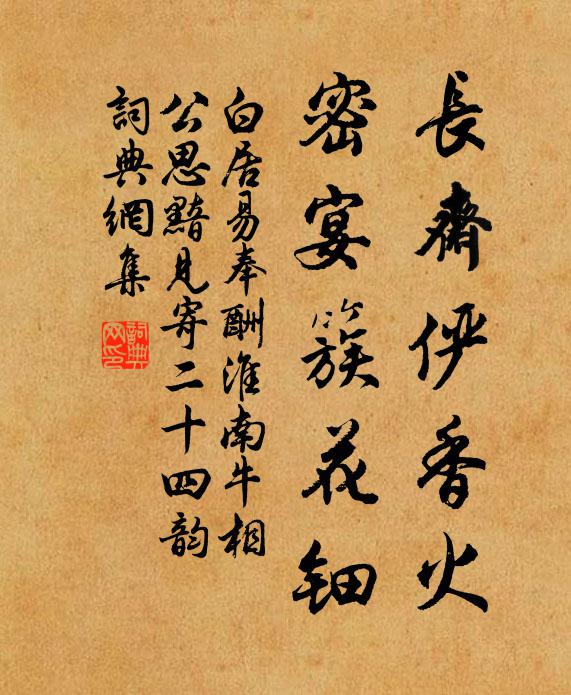 長齋俨香火
密宴簇花鈿
白居易奉酬淮南牛相
公思黯見寄二十四韵
詞典網集
詞典网印